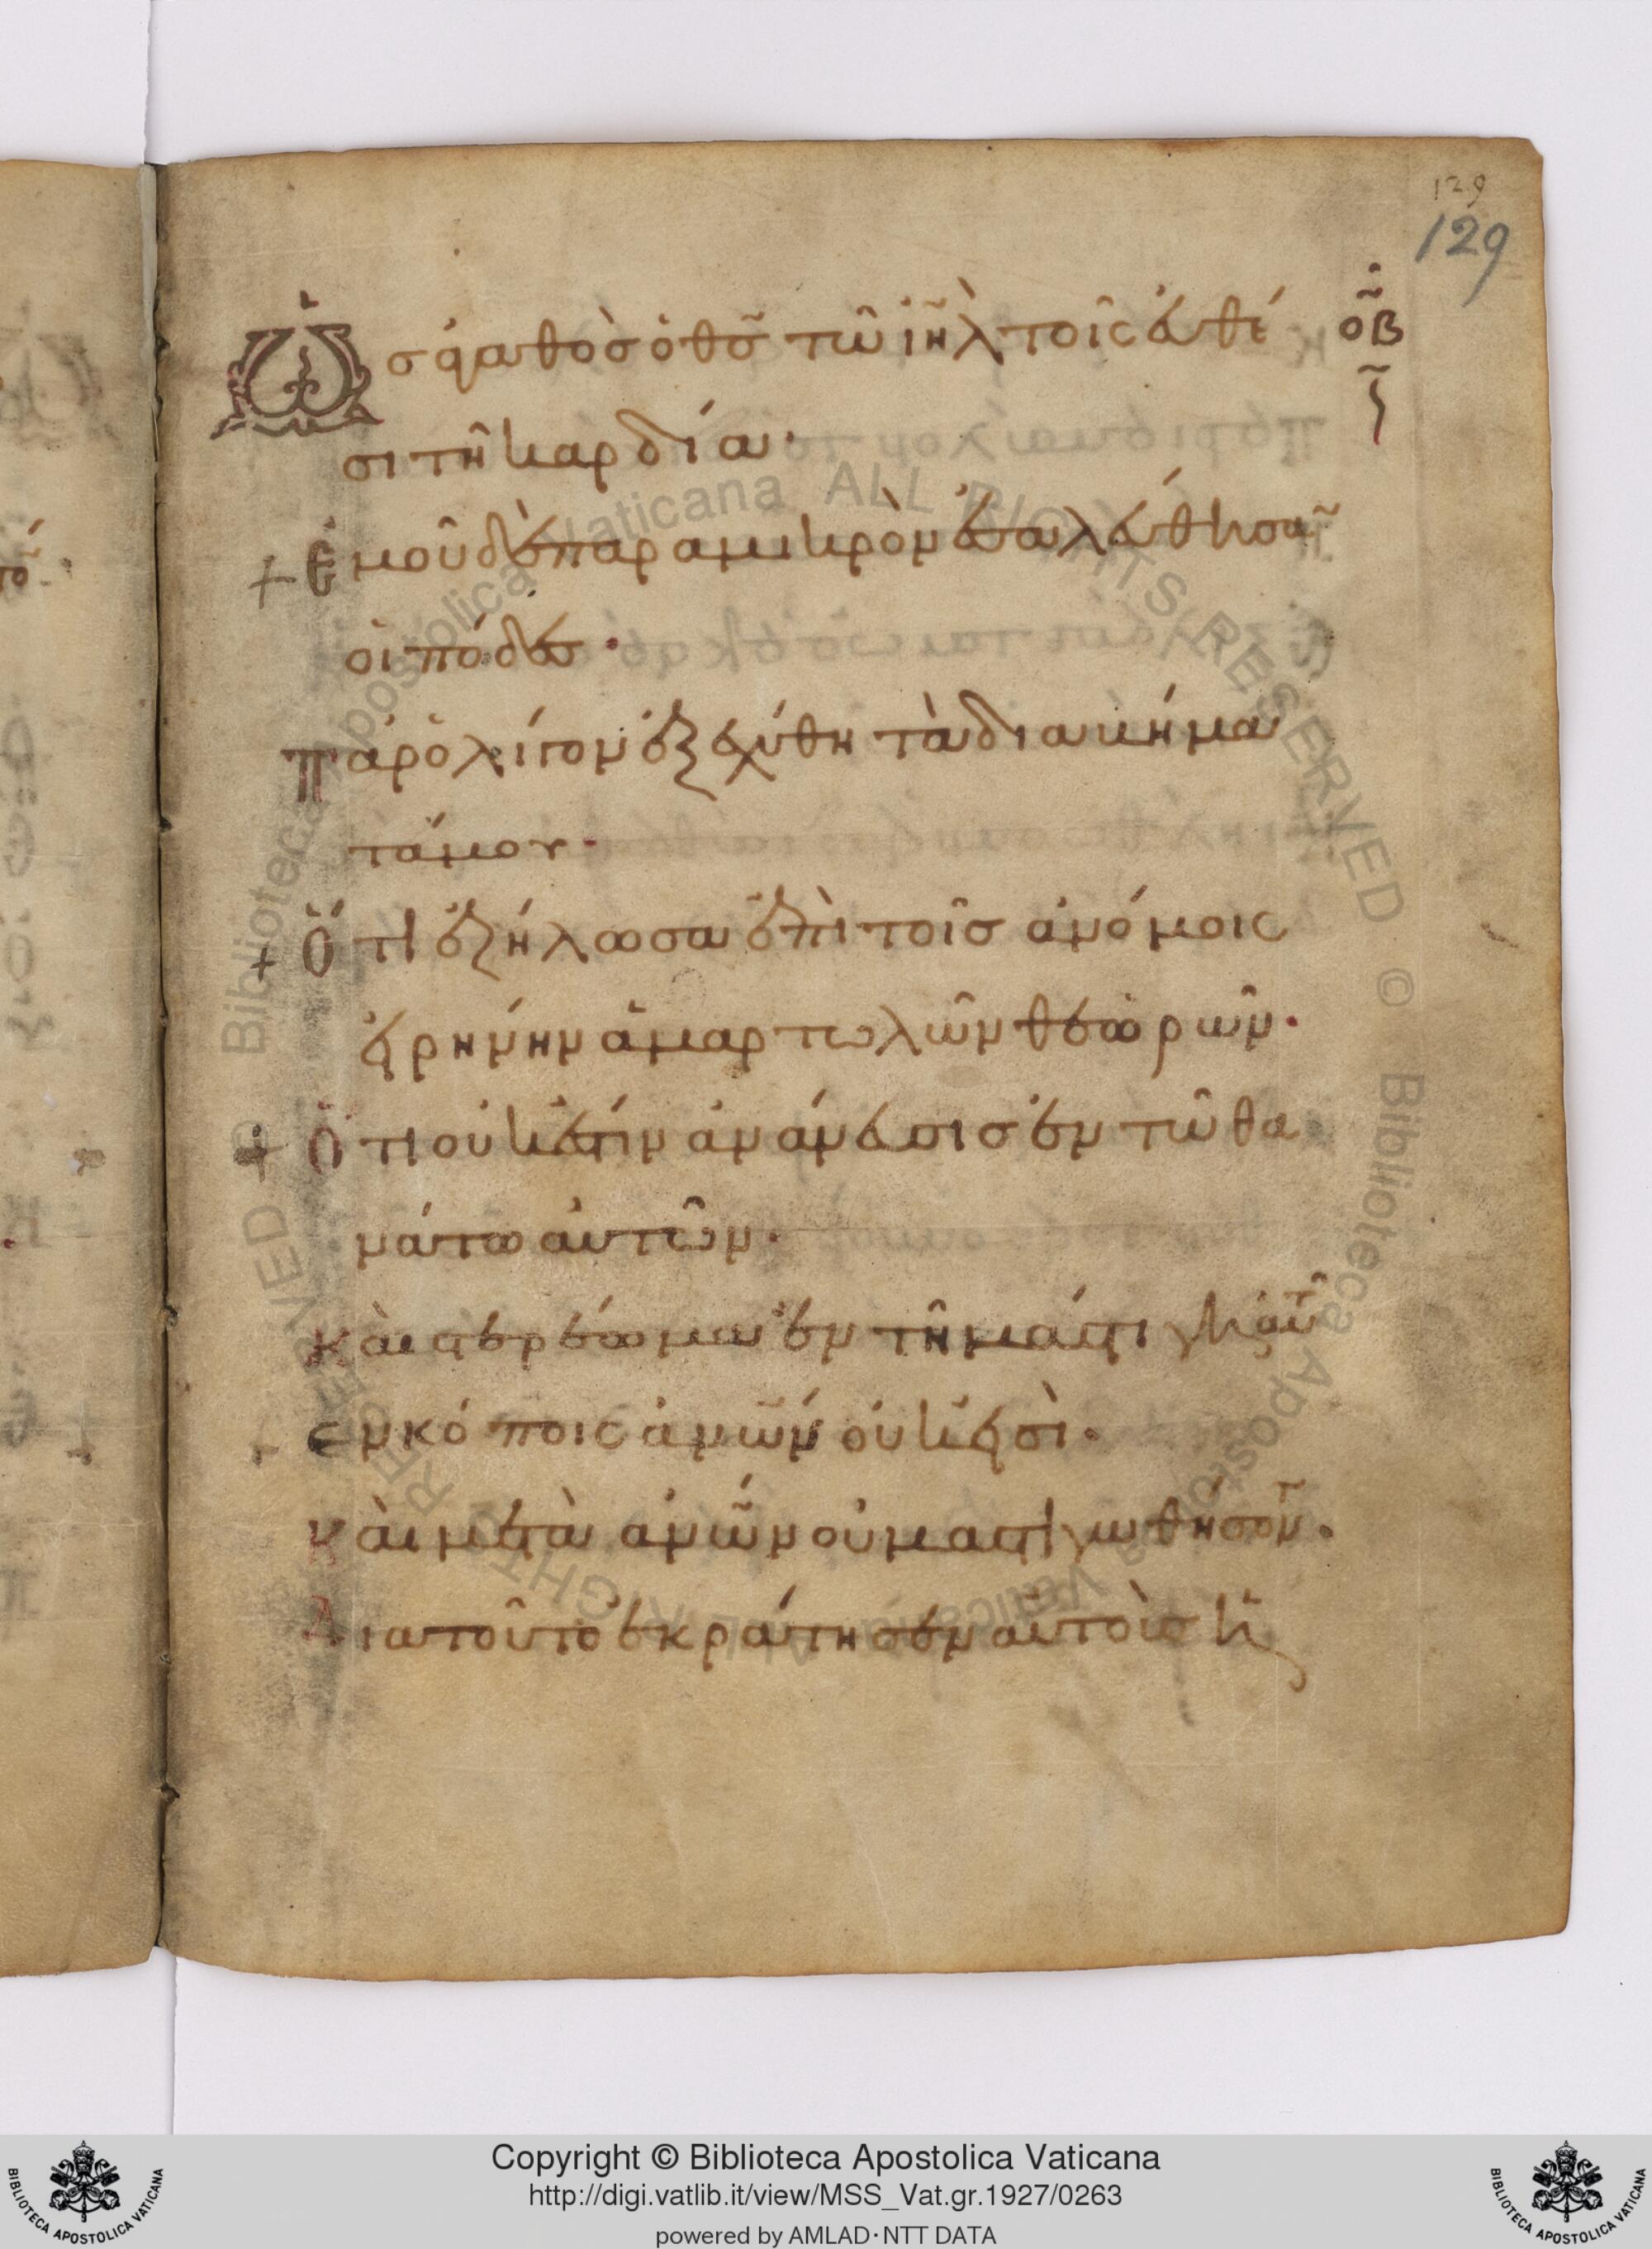 129
129
Ὡσ ἀγαθὸσ ὁ θσ̃ τῶ ἰη̃λ τοῖς ἐυθέ
οβ
σι τῆ καρδία·
Ἐμοῦ δὲ παρα μικρὸν ἐσαλέυθησα̃
οἱ πόδεσ·
παρ ὀλίγον ἐξεχύθη τὰ διαβήμα
τά μου·
Ὅτι ἐζήλωσα ἐπὶ τοῖσ ἀνόμοις
ἐιρήνην ἁμαρτωλῶν θεωρῶν·
Ὅτι οὐκ ἔστιν ἀνάνευσισ ἐν τῶ θα
νάτω ἀυτῶν·
Κὰι στερέωμα ἐν τῆ μάστιγι ἀυτ
εν κόποις ἀνῶν οὐκ ἐισὶ·
Κὰι μετὰ ἀνῶν οὐ μαστιγωθήσοντ·
Διατοῦτο ἐκράτησεν ἀυτοὺσ ἡ
Copyright © Biblioteca Apostolica Vaticana
http://digi.vatlib.it/view/MSS_Vat.gr.1927/0263
powered by AMLAD·NTT DATA
BIBLIOTECA APOSTOLICA VATICANA
BIBLIOTECA APOSTOLICA VATICANA